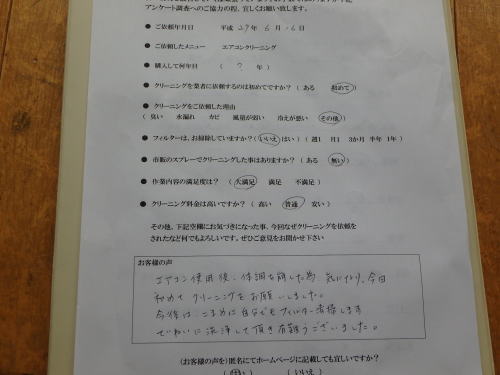 アンケート調査へのご協力の程、宜しくお願い致します。
● ご依頼年月日 平成 29年 6月 16日
● ご依頼したメニュー エアコンクリーニング
● 購入して何年目 ( ? 年 )
● クリーニングを業者に依頼するのは初めてですか? ( ある 初めて )
● クリーニングをご依頼した理由
( 臭い 水漏れ カビ 風量が弱い 冷えが悪い その他 )
● フィルターは、お掃除していますか? ( いいえ はい ) ( 週1 月1 3か月 半年 1年 )
● 市販のスプレーでクリーニングした事はありますか? ( ある 無い )
● 作業内容の満足度は? ( 大満足 満足 不満足 )
● クリーニング料金は高いですか? ( 高い 普通 安い )
その他、下記空欄にお気づきになった事、今回なぜクリーニングを依頼を
されたなど何でもよろしいです。ぜひご意見をお聞かせ下さい
お客様の声
エアコン使用後、体調を崩した為 気になり、今回
初めて クリーニングをお願いしました。
今後は こまめに自分でもフィルター清掃します
ていねいに洗浄して頂き有難うございました。
(お客様の声)匿名にてホームページに記載しても宜しいですか?
いいえ